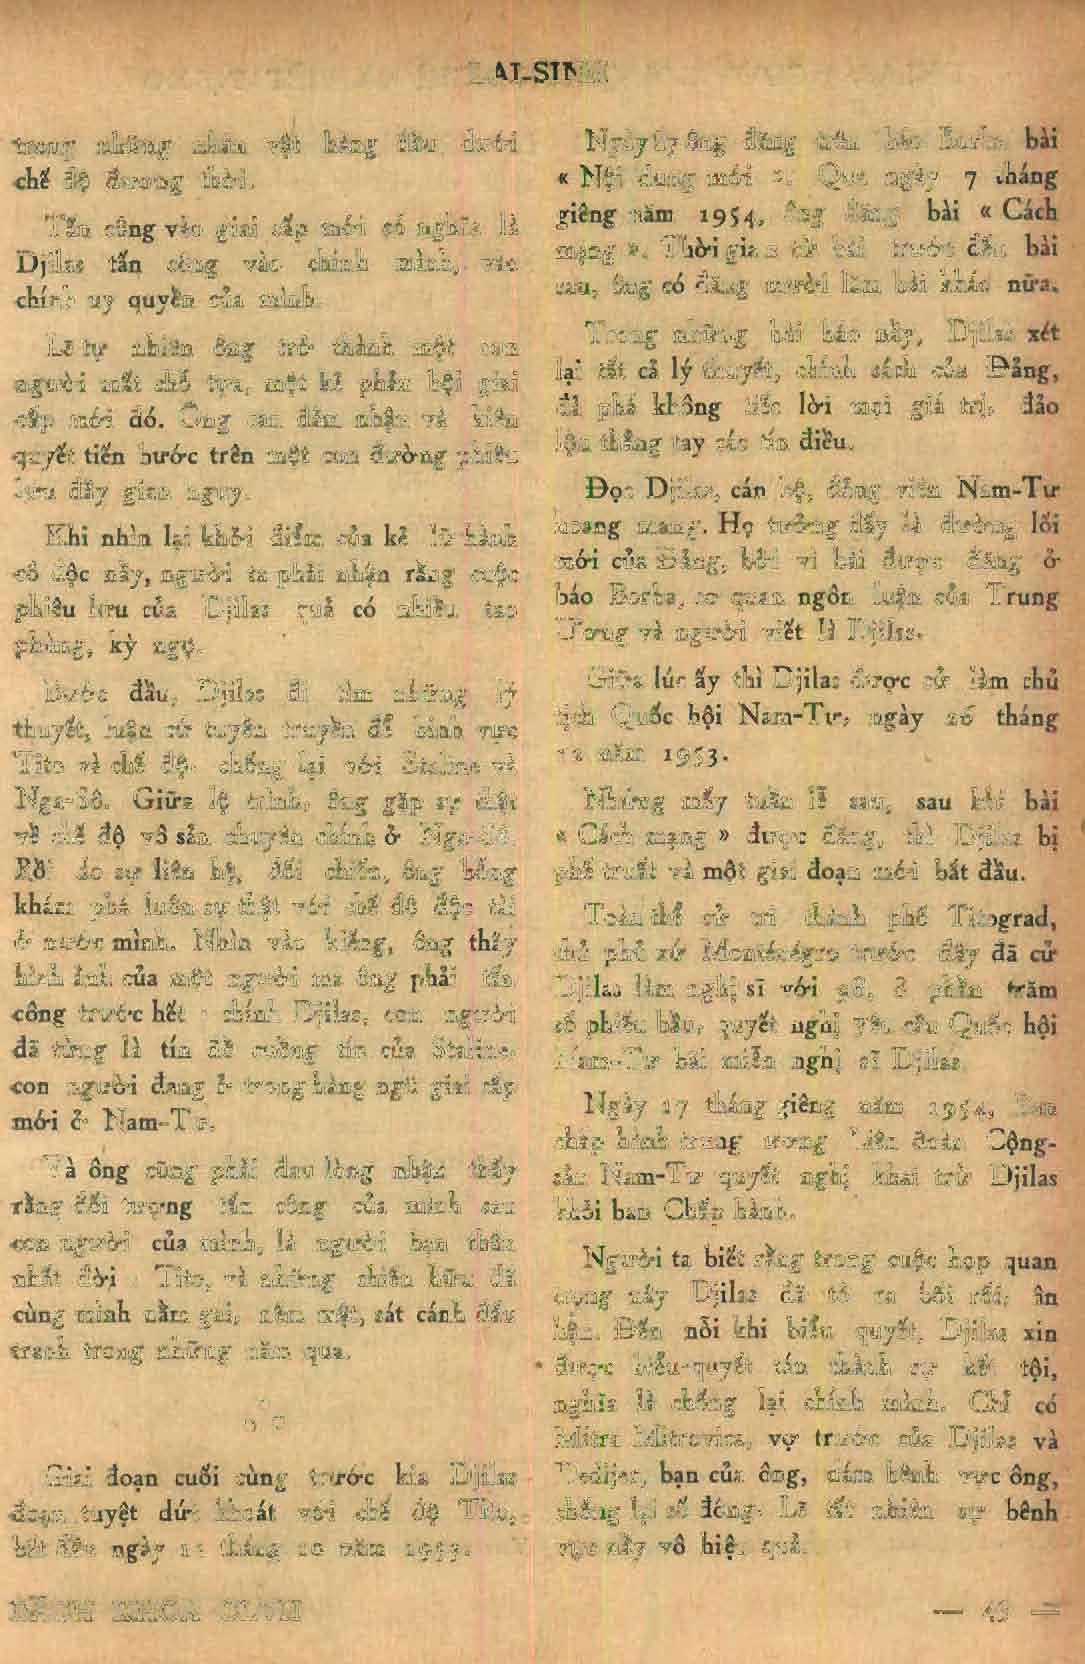 AI-SINH
trong những nhân vật hàng đầu dưới
chế độ đương thời.
Tấn công vào giai cấp mới có nghĩa là
Djilas tấn công vào chính mình, vào
chính uy quyền của mình.
Lẽ tự nhiên ông trở thành một con
người mất chỗ tựa, một kẻ phản bội giai
cấp mới đó. Ông can đảm nhận và kiên
quyết tiến bước trên một con đường phiêu
lưu đầy gian nguy.
Khi nhìn lại khởi điểm của kẻ lữ hành
cô độc nầy, người ta phải nhận rằng cuộc
phiêu lưu của Djilas quả có nhiều tao
phùng, kỳ ngộ.
Bước đầu, Djilas đi tìm những lý
thuyết, luận cứ tuyên truyền để binh vực
Tito và chế độ chống lại với Staline và
Nga-Sô. Giữa lộ trình, ông gặp sự thật
về chế độ vô sản chuyên chính ở Nga-Sô.
Rồi do sự liên hệ, đối chiếu, ông bỗng
khám phá luôn sự thật với chế độ độc tài
ở nước mình. Nhìn vào kiếng, ông thấy
hình ảnh của một người mà ông phải tấn
công trước hết : chính Djilas, con người
đã từng là tín đồ cuồng tín của Staline,
con người đang ở trong hàng ngũ giai cấp
mới ở Nam-Tư.
Và ông cũng phải đau lòng nhận thấy
rằng đối tượng tấn công của mình sau
con người của mình, là người bạn thân
nhất đời : Tito, và những chiến hữu đã
cùng mình nằm gai, nếm mật, sát cánh đấu
tranh trong những năm qua.
o°o
Giai đoạn cuối cùng trước kia Djilas
đoạn tuyệt dứt khoát với chế độ Tito,
bắt đầu ngày 11 tháng 10 năm 1953.
Ngày ấy ông đăng trên báo Borba bài
« Nội dung mới ». Qua ngày 7 tháng
giêng năm 1954, ông đăng bài « Cách
mạng ». Thời gian từ bài trước đến bài
sau, ông có đăng mười lăm bài khác nữa.
Trong những bài báo nầy, Djilas xét
lại tất cả lý thuyết, chính sách của Đảng,
đả phá không tiếc lời mọi giá trị, đảo
lộn thẳng tay các tín điều.
Đọc Djilas, cán bộ, đảng viên Nam-Tư
hoang mang. Họ tưởng đấy là đường lối
mới của Đảng, bởi vì bài được đăng ở
báo Borba, cơ quan ngôn luận của Trung
Ương và người viết là Djilas.
Giữa lúc ấy thì Djilas được cử làm chủ
tịch Quốc hội Nam-Tư, ngày 26 tháng
12 năm 1953.
Nhưng mấy tuần lễ sau, sau khi bài
« Cách mạng » được đăng, thì Djilas bị
phế truất và một giai đoạn mới bắt đầu.
Toàn thể cử tri thành phố Titograd,
thủ phủ xứ Monténégro trước đây đã cử
Djilas làm nghị sĩ với 98, 8 phần trăm
số phiếu bầu, quyết nghị yêu cầu Quốc hội
Nam-Tư bãi miễn nghị sĩ Djilas.
Ngày 17 tháng giêng năm 1954, Ban
chấp hành trung ương Liên đoàn Cộng-
sản Nam-Tư quyết nghị khai trừ Djilas
khỏi ban Chấp hành.
Người ta biết rằng trong cuộc họp quan
trọng nầy Djilas đã tỏ ra bối rối, ân
hận. Đến nỗi khi biểu quyết, Djilas xin
được biểu-quyết tán thành sự kết tội,
nghĩa là chống lại chính mình. Chỉ có
Mitra Mitrovics, vợ trước của Djilas và
Dedijer, bạn của ông, dám bênh vực ông,
chống lại số đông. Lẽ tất nhiên sự bênh
vực nầy vô hiệu quả.
BÁCH KHOA
— 43 —